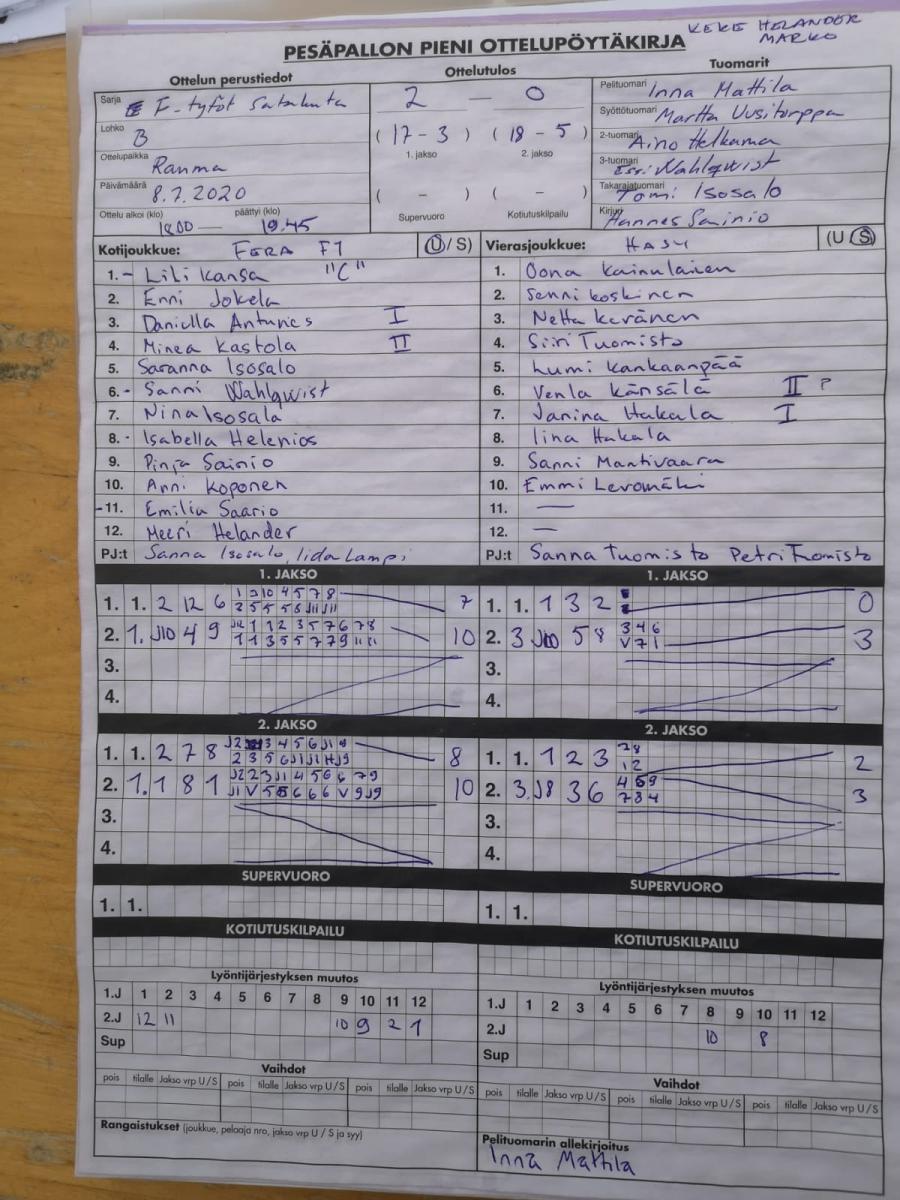 KEKE HELANDER
MARKO
PESÄPALLON PIENI OTTELUPÖYTÄKIRJA
Ottelun perustiedot
Ottelutulos
Tuomarit
Sarja F-tytöt Satakunta
Lohko B
Ottelupaikka Rauma
Päivämäärä 8.7.2020
Ottelu alkoi (klo) 18.00 — päättyi (klo) 19.45
2 — 0
( 17 - 3 ) ( 18 - 5 )
1. jakso 2. jakso
( - ) ( - )
Supervuoro Kotiutuskilpailu
Pelituomari Inna Mattila
Syöttötuomari Martta Uusitorppa
2-tuomari Aino Helkama
3-tuomari Essi Wahlqwist
Takarajatuomari Tomi Isosalo
Kirjuri Hannes Sainio
Kotijoukkue: FERA F1 (U/S)
1. - Lili Kansa "C"
2. Enni Jokela
3. Daniella Antunes I
4. Minea Kastola II
5. Saranna Isosalo
6. - Sanni Wahlqwist
7. Nina Isosalo
8. - Isabella Helenios
9. Pinja Sainio
10. Anni Koponen
- 11. Emilia Saario
12. Meeri Helander
PJ:t Sanna Isosalo, Iida Lampi
Vierasjoukkue: HASU (U/S)
1. Oona Kainulainen
2. Senni Koskinen
3. Netta Keränen
4. Siiri Tuomisto
5. Lumi Kankaanpää
6. Venla Känsälä II ?
7. Janina Hakala I
8. Iina Hakala
9. Sanni Mantivaara
10. Emmi Levomäki
11. —
12. —
PJ:t Sanna Tuomisto Petri Tuomisto
1. JAKSO
1. 1. 2 12 6 7
2. 1. J10 4 9 10
3.
4.
1. JAKSO
1. 1. 1 3 2 0
2. 3 J10 5 8 3 4 6 3
V 7 1
3.
4.
2. JAKSO
1. 1. 2 7 8 8
2. 1. 1 8 1 10
3.
4.
2. JAKSO
1. 1. 1 2 3 2 8 2
1 2
2. 3. J8 3 6 4 5 9 3
7 8 4
3.
4.
SUPERVUORO
1. 1.
SUPERVUORO
1. 1.
KOTIUTUSKILPAILU
KOTIUTUSKILPAILU
Lyöntijärjestyksen muutos
1.J 1 2 3 4 5 6 7 8 9 10 11 12
2.J 12 11 10 9 2 1
Sup
Lyöntijärjestyksen muutos
1.J 1 2 3 4 5 6 7 8 9 10 11 12
2.J 10 8
Sup
Vaihdot
pois tilalle Jakso vrp U/S pois tilalle Jakso vrp U/S pois tilalle Jakso vrp U/S
Vaihdot
pois tilalle Jakso vrp U/S pois tilalle Jakso vrp U/S pois tilalle Jakso vrp U/S
Rangaistukset (joukkue, pelaaja nro, jakso vrp U/S ja syy)
Pelituomarin allekirjoitus
Inna Mattila